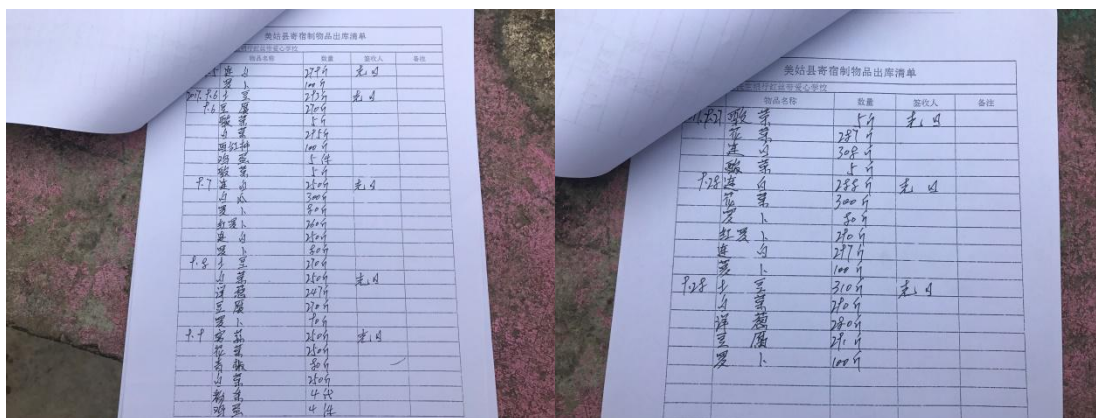 美姑县寄宿制物品出库清单
物品名称 数量 签收人 备注
莲白 279斤
萝卜 100斤
9.6 土豆 293斤
9.6 豆腐 290斤
酸菜 5斤
白菜 295斤
100斤
鸡蛋 5件
酸菜 5斤
9.7 莲白 250斤
白瓜 300斤
萝卜 80斤
红萝卜 260斤
莲白 250斤
萝卜 80斤
9.8 土豆 290斤
白菜 250斤
洋葱 247斤
豆腐 270斤
萝卜 90斤
9.9 250斤
花菜 250斤
青椒 80斤
白菜 250斤
4代
鸡蛋 4件
美姑县寄宿制物品出库清单
物品名称 数量 签收人 备注
9.27 酸菜 5斤
花菜 287斤
莲白 308斤
酸菜 5斤
9.28 莲白 288斤
花菜 300斤
萝卜 80斤
红萝卜 290斤
莲白 297斤
萝卜 100斤
9.28 土豆 310斤
白菜 290斤
洋葱 280斤
豆腐 291斤
萝卜 100斤